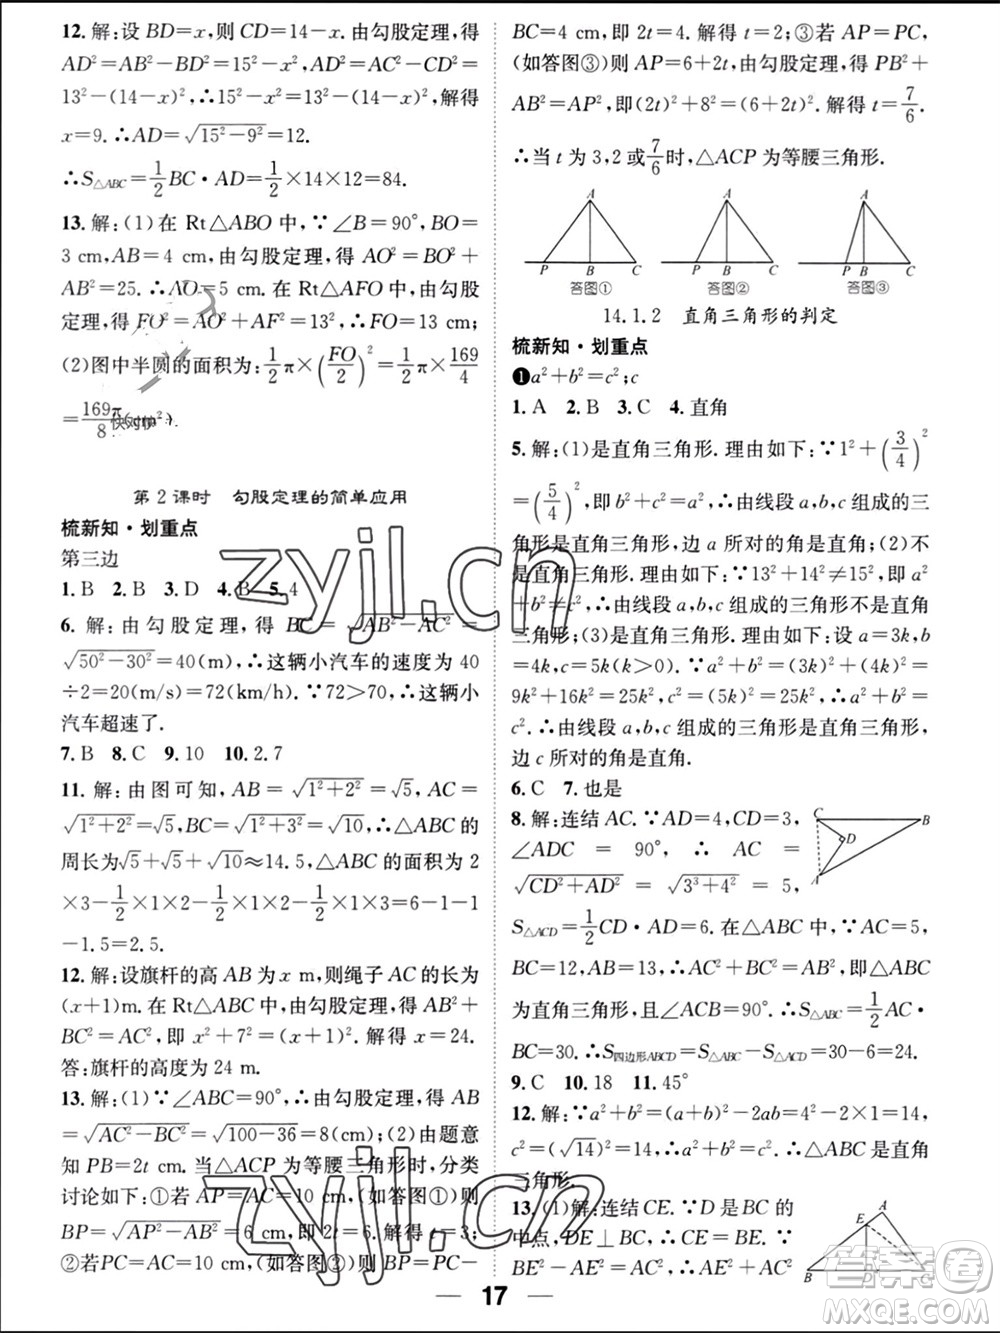 12. 解:设 BD=x,则 CD=14-x. 由勾股定理,得
AD²=AB²-BD²=15²-x²,AD²=AC²-CD²=
13²-(14-x)²,∴15²-x²=13²-(14-x)²,解得
x=9. ∴AD=√(15²-9²)=12.
∴S△ABC=1/2 BC·AD=1/2×14×12=84.
13. 解:(1)在 Rt△ABO 中,∵∠B=90°,BO=
3 cm,AB=4 cm,由勾股定理,得 AO²=BO²+
AB²=25. ∴AO=5 cm. 在 Rt△AFO 中,由勾股
定理,得 FO²=AO²+AF²=13²,∴FO=13 cm;
(2)图中半圆的面积为:1/2 π×(FO/2)²=1/2 π×169/4
=169π/8(cm²).
第 2 课时 勾股定理的简单应用
梳新知·划重点
第三边
1. B 2. B 3. D 4. B 5. 4
6. 解:由勾股定理,得 BC=√(AB²-AC²)=
√(50²-30²)=40(m),∴这辆小汽车的速度为 40
÷2=20(m/s)=72(km/h). ∵72>70,∴这辆小
汽车超速了.
7. B 8. C 9. 10 10. 2.7
11. 解:由图可知,AB=√(1²+2²)=√5,AC=
√(1²+2²)=√5,BC=√(1²+3²)=√10,∴△ABC 的
周长为√5+√5+√10≈14.5,△ABC 的面积为 2
×3-1/2×1×2-1/2×1×2-1/2×1×3=6-1-1
-1.5=2.5.
12. 解:设旗杆的高 AB 为 x m,则绳子 AC 的长为
(x+1)m. 在 Rt△ABC 中,由勾股定理,得 AB²+
BC²=AC²,即 x²+7²=(x+1)². 解得 x=24.
答:旗杆的高度为 24 m.
13. 解:(1)∵∠ABC=90°,∴由勾股定理,得 AB
=√(AC²-BC²)=√(100-36)=8(cm);(2)由题意
知 PB=2t cm. 当△ACP 为等腰三角形时,分类
讨论如下:①若 AP=AC=10 cm,(如答图①)则
BP=√(AP²-AB²)=6 cm,即 2t=6. 解得 t=3;
②若 PC=AC=10 cm,(如答图②)则 BP=PC-
BC=4 cm,即 2t=4. 解得 t=2;③若 AP=PC,
(如答图③)则 AP=6+2t,由勾股定理,得 PB²+
AB²=AP²,即(2t)²+8²=(6+2t)². 解得 t=7/6.
∴当 t 为 3,2 或7/6时,△ACP 为等腰三角形.
A A A
P B C P B C P B C
答图① 答图② 答图③
14.1.2 直角三角形的判定
梳新知·划重点
❶a²+b²=c²;c
1. A 2. B 3. C 4. 直角
5. 解:(1)是直角三角形. 理由如下:∵1²+(3/4)²
=(5/4)²,即 b²+c²=a²,∴由线段 a,b,c 组成的三
角形是直角三角形,边 a 所对的角是直角;(2)不
是直角三角形. 理由如下:∵13²+14²≠15²,即
a²+b²≠c²,∴由线段 a,b,c 组成的三角形不是直角
三角形;(3)是直角三角形. 理由如下:设 a=3k,b
=4k,c=5k(k>0). ∵a²+b²=(3k)²+(4k)²=
9k²+16k²=25k²,c²=(5k)²=25k²,∴a²+b²=
c². ∴由线段 a,b,c 组成的三角形是直角三角形,
边 c 所对的角是直角.
6. C 7. 也是
8. 解:连结 AC. ∵AD=4,CD=3,
∠ADC = 90°, ∴ AC =
√(CD²+AD²) = √(3²+4²) = 5,
S△ACD=1/2 CD·AD=6. 在△ABC 中,∵AC=5,
BC=12,AB=13,∴AC²+BC²=AB²,即△ABC
为直角三角形,且∠ACB=90°. ∴S△ABC=1/2 AC·
BC=30. ∴S四边形ABCD=S△ABC-S△ACD=30-6=24.
C B D A
9. C 10. 18 11. 45°
12. 解:∵a²+b²=(a+b)²-2ab=4²-2×1=14,
c²=(√14)²=14,∴a²+b²=c². ∴△ABC 是直角
三角形.
13. (1)解:连结 CE. ∵D 是 BC 的
中点,DE⊥BC,∴BE=CE. ∵
BE²-AE²=AC²,∴CE²-AE²=
A E B D C
17
快对
zyjl.cn
zyjl.cn
答案卷
MXQE.COM